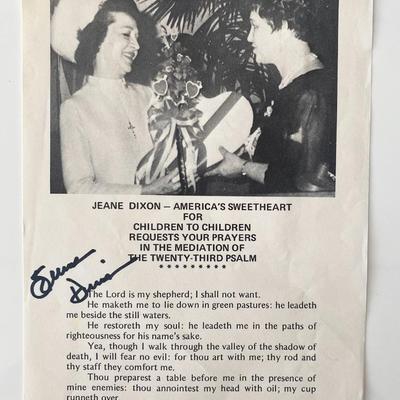 JEANE DIXON — AMERICA'S SWEETHEART
FOR
CHILDREN TO CHILDREN
REQUESTS YOUR PRAYERS
IN THE MEDIATION OF
THE TWENTY-THIRD PSALM
* * * * * * * * *
Jeane
Dixon
The Lord is my shepherd; I shall not want.
He maketh me to lie down in green pastures: he leadeth
me beside the still waters.
He restoreth my soul: he leadeth me in the paths of
righteousness for his name's sake.
Yea, though I walk through the valley of the shadow of
death, I will fear no evil: for thou art with me; thy rod and
thy staff they comfort me.
Thou preparest a table before me in the presence of
mine enemies: thou annointest my head with oil; my cup
runneth over